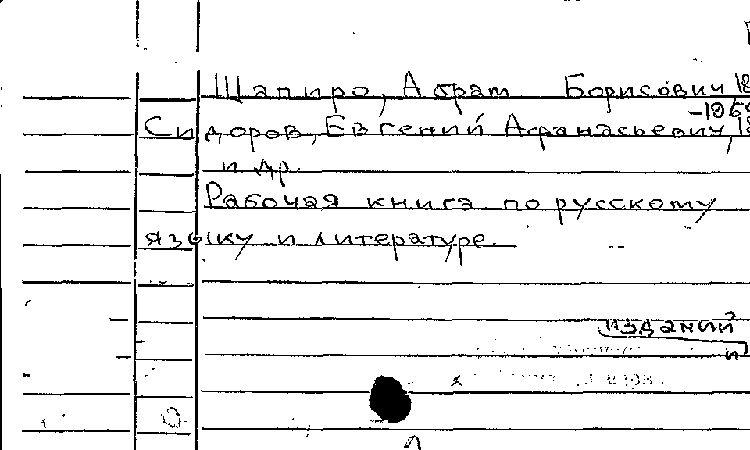 Шапиро, Абрам Борисович, 18
-196
Сидоров, Евгений Афанасьевич, 18
и др.
Рабочая книга по русскому
языку и литературе.
изданий